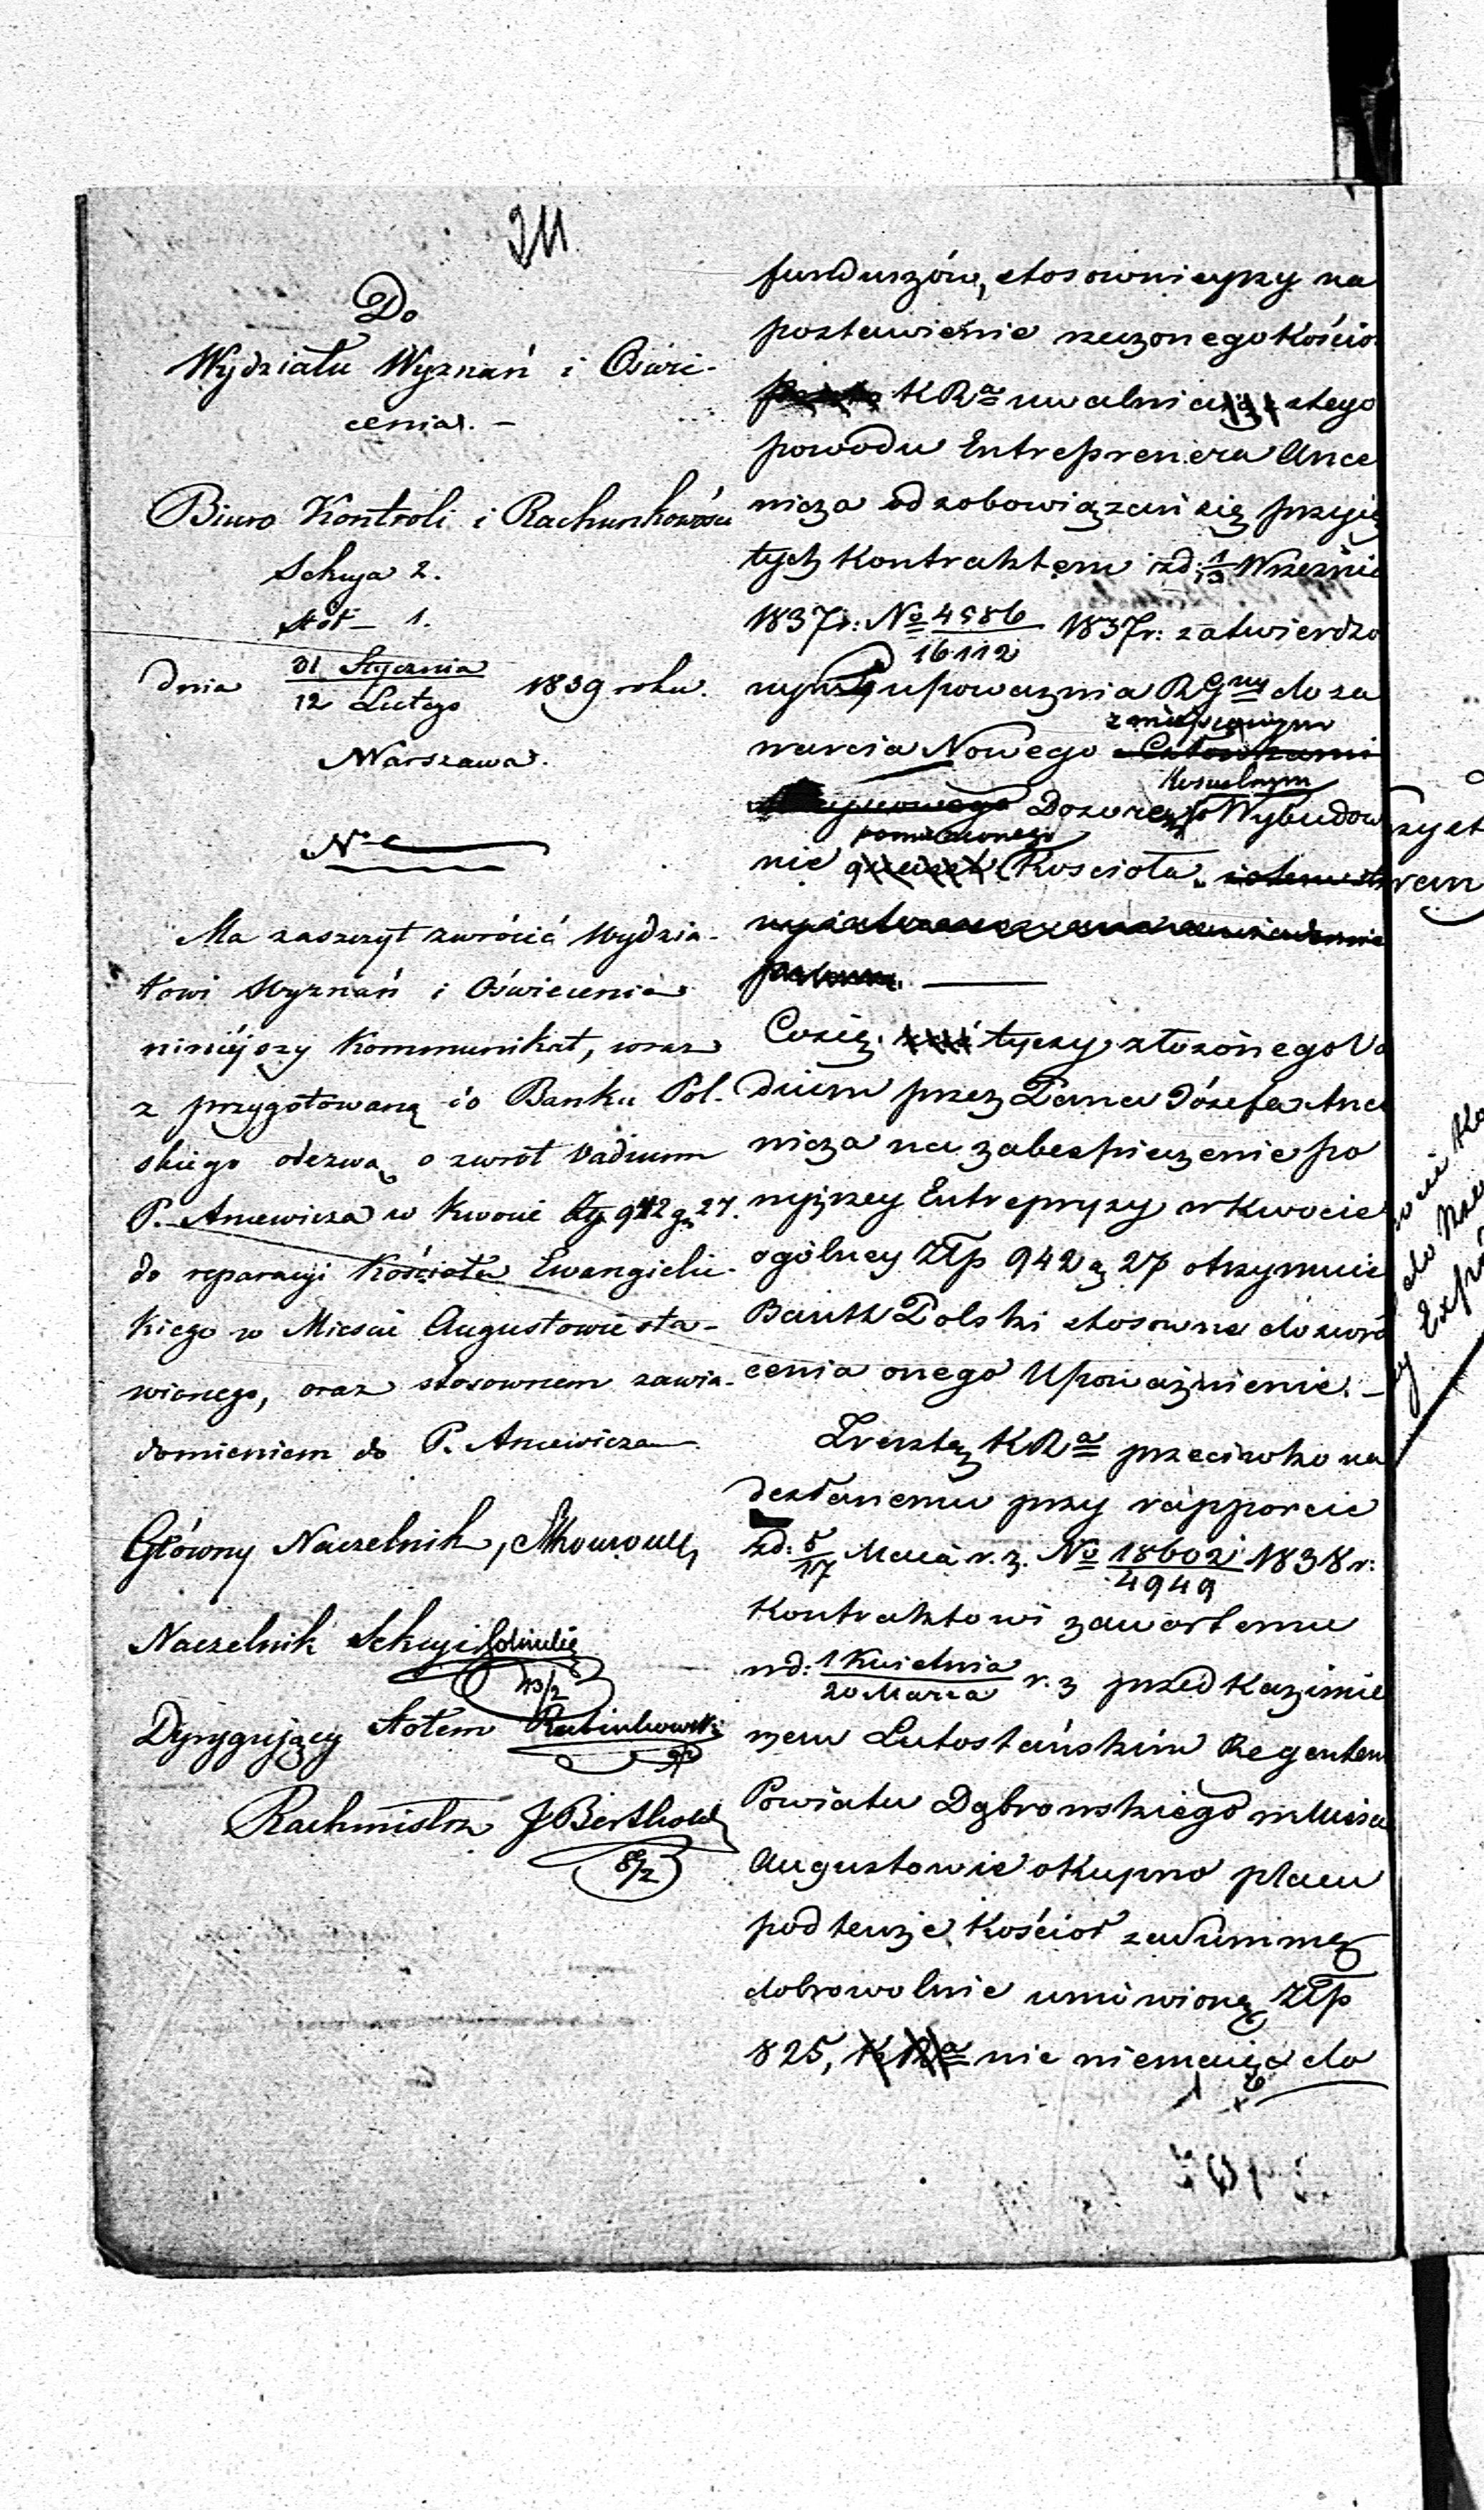 211
Do
Wydziału Wyznań i Oświe-
cenia. —
Biuro Kontroli i Rachunkowości
Sekcya 2.
Stół — 1.
dnia 31 Stycznia / 12 Lutego 1839 roku.
Warszawa.
No
Ma zaszczyt zwrócić Wydzia-
łowi Wyznań i Oświecenia
niniéjszy Kommunikat, wraz
z przygotowaną do Banku Pol-
skiego odezwą o zwrot Vadium
P. Ancewicza w kwocie Złp 942 gr 27.
do reparacyi Kościoła Ewangielic-
kiego w Mieście Augustowie sta-
wionego, oraz stosownem zawia-
domieniem do P. Ancewicza.
Główny Naczelnik,
Naczelnik Sekcyi
13/2
Dyrygujący Stołem
Rachmistrz J Berthold
8/2
funduszów, stosownieyszy na
postawienie rzeczonego Kościo
KRa uwalnia z tego
powodu Entreprenera Ance
wicza od zobowiązań się przyję
tych Kontraktem z d: 1/13 Wrześnie
1837 r: No 4586/16112 1837 r: zatwierdzo
nym, upoważnia RGny do za
zmieyscowym
warcia Nowego
Kościelnym
Dozorem o Wybudow
pomienionego
nie Kościoła
Co się tyczy złożonego Va
dium przez Pana Józefa Ance
wicza na zabezpieczenie po
wyższey Entrepryzy w kwocie
ogólney Złp 942 gr 27 otrzymuie
Bank Polski stosowne do zwró
cenia onego Upoważnienie. —
Zresztą KRa przeciwko na
desłanemu przy rapporcie
z d: 5/17 Maia r. z. No 18602/4949 1838 r:
Kontraktowi zawartemu
w d: 1 Kwietnia / 20 Marca r. z przed Kazimie
rzem Lutostańskim Regentem
Powiatu Dąbrowskiego w Mieście
Augustowie o kupno placu
pod tenże Kościoł za Summę
dobrowolnie umówioną Złp
825, nic niemaiąc do